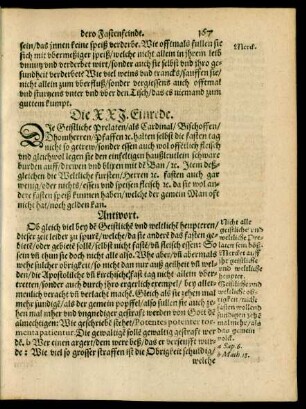 dero Fastenfeindt. 167
sein / das jnnen keine speiß verderbe. Wie offtmals füllen sie
sich mit vbermeßiger speiß / welche nicht allein in jhrem leib
vnnütz vnd verderbet wirt / sonder auch sie selbst vnd jhre ge-
sundheit verderbet? Wie viel weins vnd trancks / sauffen sie /
nicht allein zum vberfluß / sonder vergiessens auch offtmal
vnd stürtzens vnter vnd vber den Tisch / das es niemand zum
guttem kumpt.
Merck.
Die XXI. Einrede.
Die Geistliche Prelaten / als Cardinal / Bischoffen /
Dhomherren / Pfaffen ꝛc. halten selbst die fasten tag
nicht so getrew / sonder essen auch wol offentlich fleisch
vnd gleichwol legen sie den einfeltigen haußleuten schwäre
burden auff / drewen vnd blitzen mit dē Ban / ꝛc. Item des-
gleichen die Weltliche fürsten / Herren ꝛc. fasten auch gar
wenig / oder nichts / essen vnd speisen fleisch ꝛc. da sie wol an-
dere fasten speiß kummen haben / welche der gemein Man oft
nicht hat / noch gelden kan.
Antwort.
Ob gleich viel bey dē Geistliche vnd weltliche heupteren
dieser zeit leider zu spurē / welche / da sie anderē das fasten ge-
bietē / oder gebietē solle / selbst nicht fastē vñ fleisch essen: So
sein vñ thun sie doch nicht alle also. Wee aber / vñ abermals
wehe sulcher obrigkeit / so nicht dan nur auß geilheit vñ wel-
den / die Apostolische vñ kirchische fast tag nicht allein vber-
tretten / sonder auch durch jhro ergerlich exempel / bey aller-
menlich veracht vñ verlacht machē. Gleich als sie zehen mal
mehr sundigē / als der gemein pofel / also sollen sie auch ze-
hen mal harter vnd vngnediger gestrafft werden von Gott dē
almechtigen: Wie geschriebē stehet / Potentes potenter tor-
menta patientur. Die gewaltig werdē gewaltig gestrafft wer-
dē. b Wer einen argert / dem werē baß / das er versenckt wur-
de: Wie viel so grosser straffen ist die Obrigkeit schuldig /
welche
Nicht alle
geistliche vnd
weltliche Pre-
laten sein böß.
Mercket auch
jhr geistliche
vnd weltliche
heupter.
Die geistliche
vnd weltliche
ob-
rigkeit
sundigē zehē
mal mehr / als
das gemein
volck.
a Sap. 6.
b Math. 18.